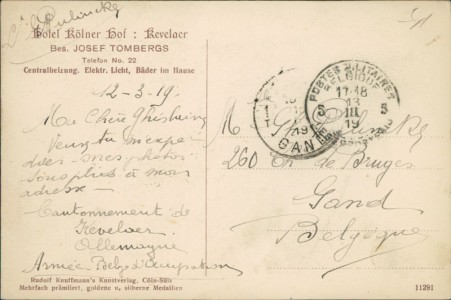 Hotel Kölner Hof : Kevelaer
Bes. JOSEF TOMBERGS
Telefon No. 22
Centralheizung. Elektr. Licht, Bäder im Hause
12-3-19.
Ma Chère Ghislaine
Veux tu m'expé
dier mes photos
sous plis à mon
adresse -
Cantonnement de
Kevelaer
Allemagne
Armée Belge d'Occupation
Rudolf Kauffmann's Kunstverlag, Cöln-Sülz
Mehrfach prämiiert, goldene u. silberne Medaillen
POSTES MILITAIRES
BELGIQUE
17-18
13
III
19
5 5
GAN
19
M
260 de Bruges
Gand
Belgique
11291